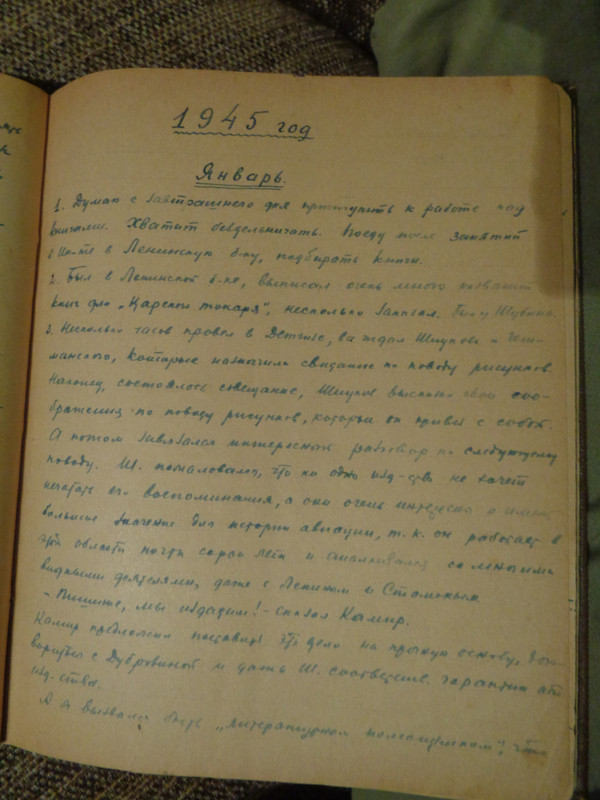 1945 год
Январь.
1. Думаю с завтрашнего дня приступить к работе над
книгами. Хватит бездельничать. Поеду после занятий
в Ин-те в Ленинскую б-ку, подбирать книги.
2. Был в Ленинской б-ке, выписал очень много названий
книг для „Царского токаря", несколько заказал. Был у Шубина.
3. Несколько часов провел в Детгизе, ждал Шиукова и
которые назначили свидание по поводу рисунков.
Наконец, состоялось совещание, Шиуков высказал свои соо-
бражения по поводу рисунков, которые он привез с собой.
А потом завязался интересный разговор по следующему
поводу. Ш. пожаловался, что ни одно изд-ство не хочет
печатать его воспоминания, а они очень интересны и имеют
большое значение для истории авиации, т. к. он работает в
этой области почти сорок лет и сталкивался со многими
видными деятелями, даже с Лениным и Сталиным.
- Пишите, мы издадим! - сказал Камир.
Камир предложил поставить это дело на прочную основу, дого-
вориться с Дубровиной и дать Ш. соответств. гарантии от
изд-ства.
А я вызвался быть „литературным консультантом", что